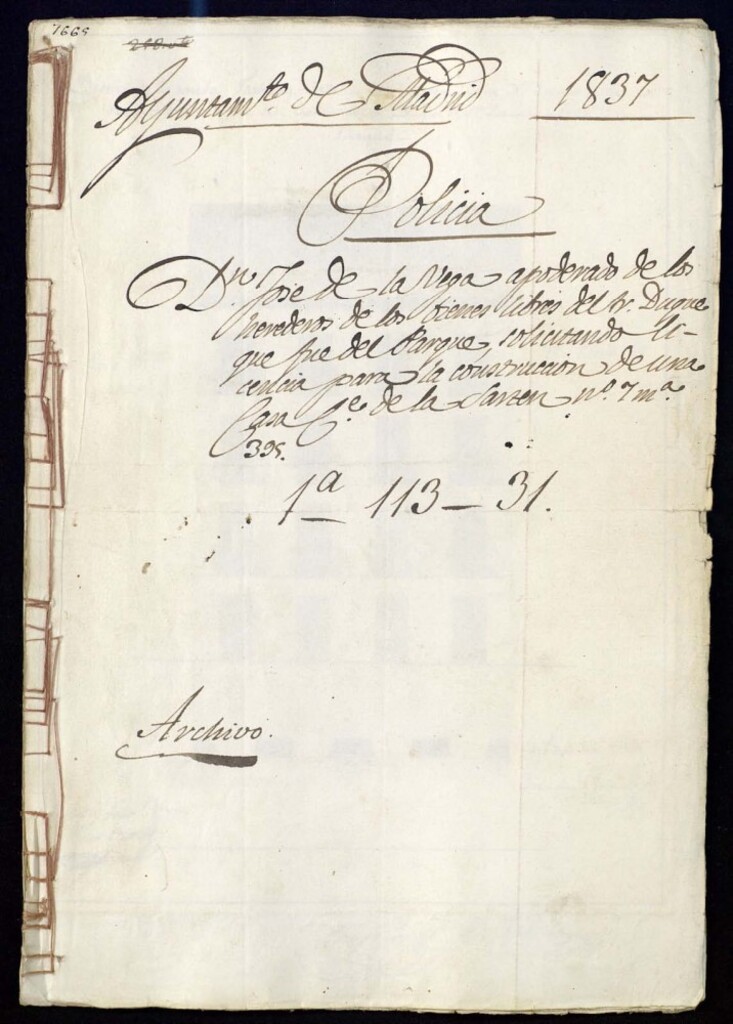 1665
Ayuntam.to de Madrid 1837
Policia
D.n Jose de la Vega apoderado de los
herederos de los bienes libres del Sr. Duque
que fue del Parque, solicitando li-
cencia para la construccion de una
Casa C.e de la Sarten n.o 7 m.a
395.
1.a 113 - 31.
Archivo.